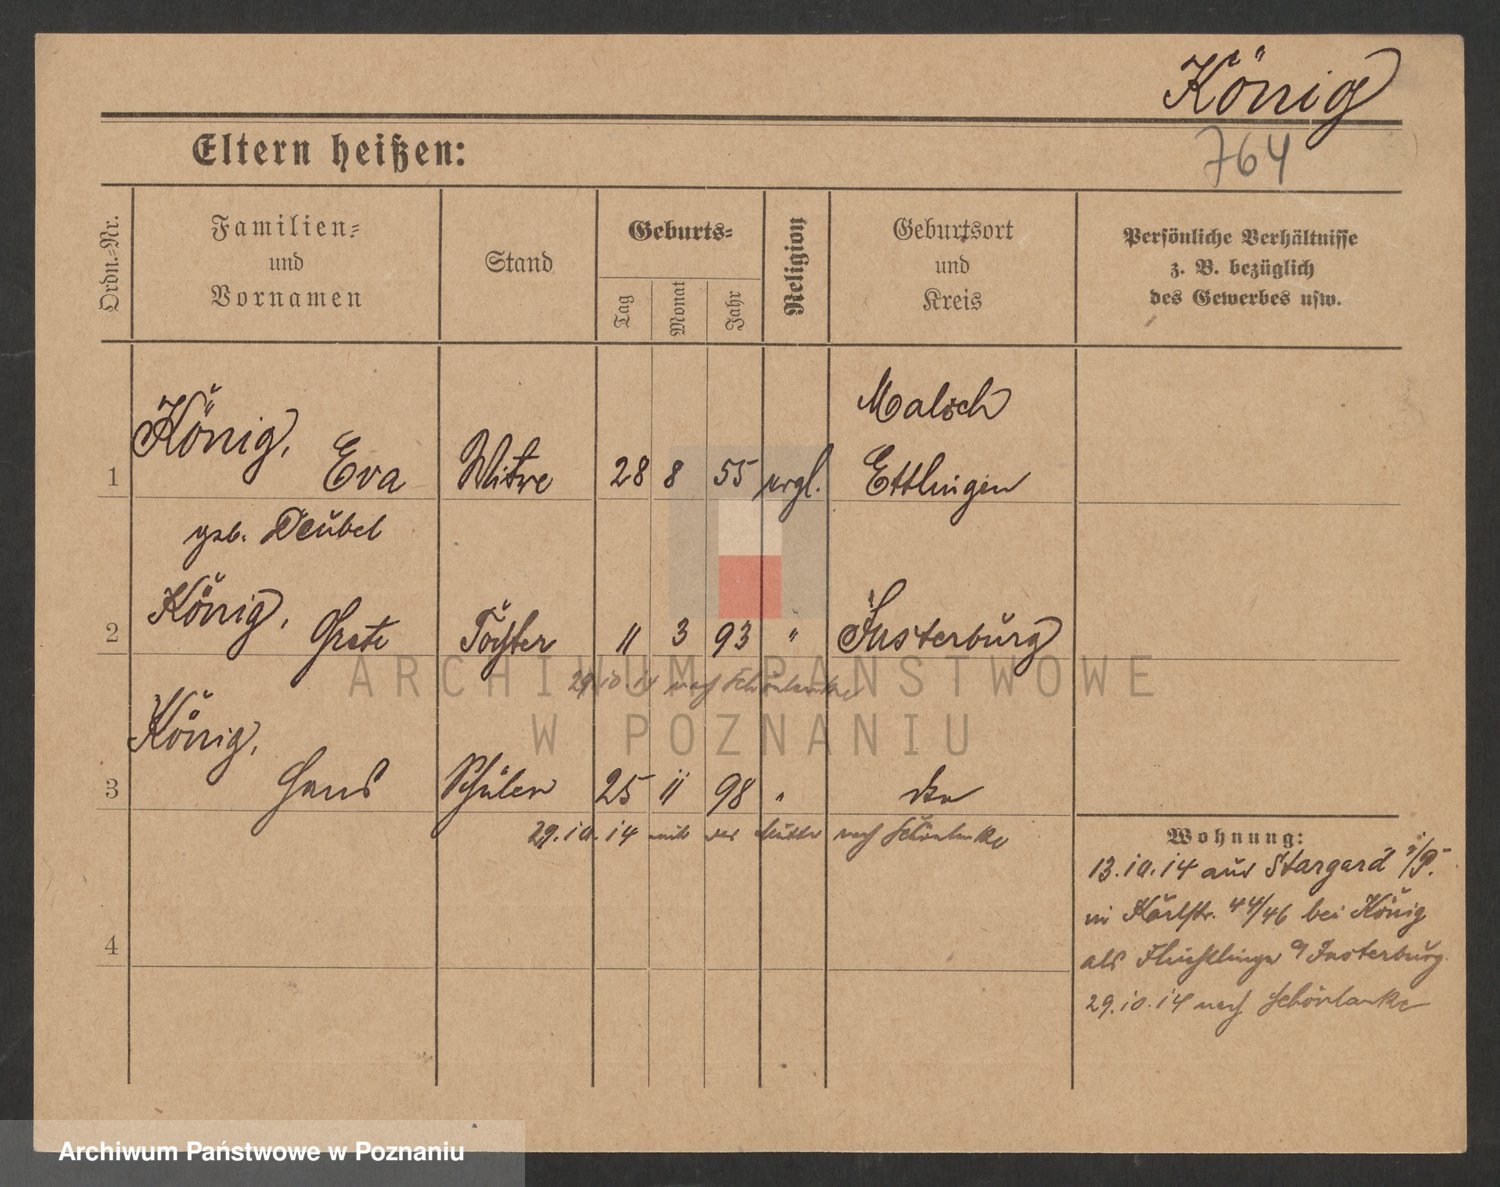 König
764
Eltern heißen:
Ordn.-Nr.
Familien-
und
Vornamen
Stand
Geburts-
Tag
Monat
Jahr
Religion
Geburtsort
und
Kreis
Persönliche Verhältnisse
z. B. bezüglich
des Gewerbes usw.
Malsch
1 König, Eva Witwe 28 8 55 evgl. Ettlingen
geb. Deubel
2 König, Grete Tochter 11 3 93 " Insterburg
29.10.14 nach Schönlanke
König,
3 Hans Schüler 25 11 98 "
29.10.14 mit der Mutter nach Schönlanke
4
Wohnung:
13.10.14 aus Stargard i/P.
in Karlstr. 44/46 bei König
als Flüchtlinge a/Insterburg.
29.10.14 nach Schönlanke
ARCHIWUM PAŃSTWOWE
W POZNANIU
Archiwum Państwowe w Poznaniu